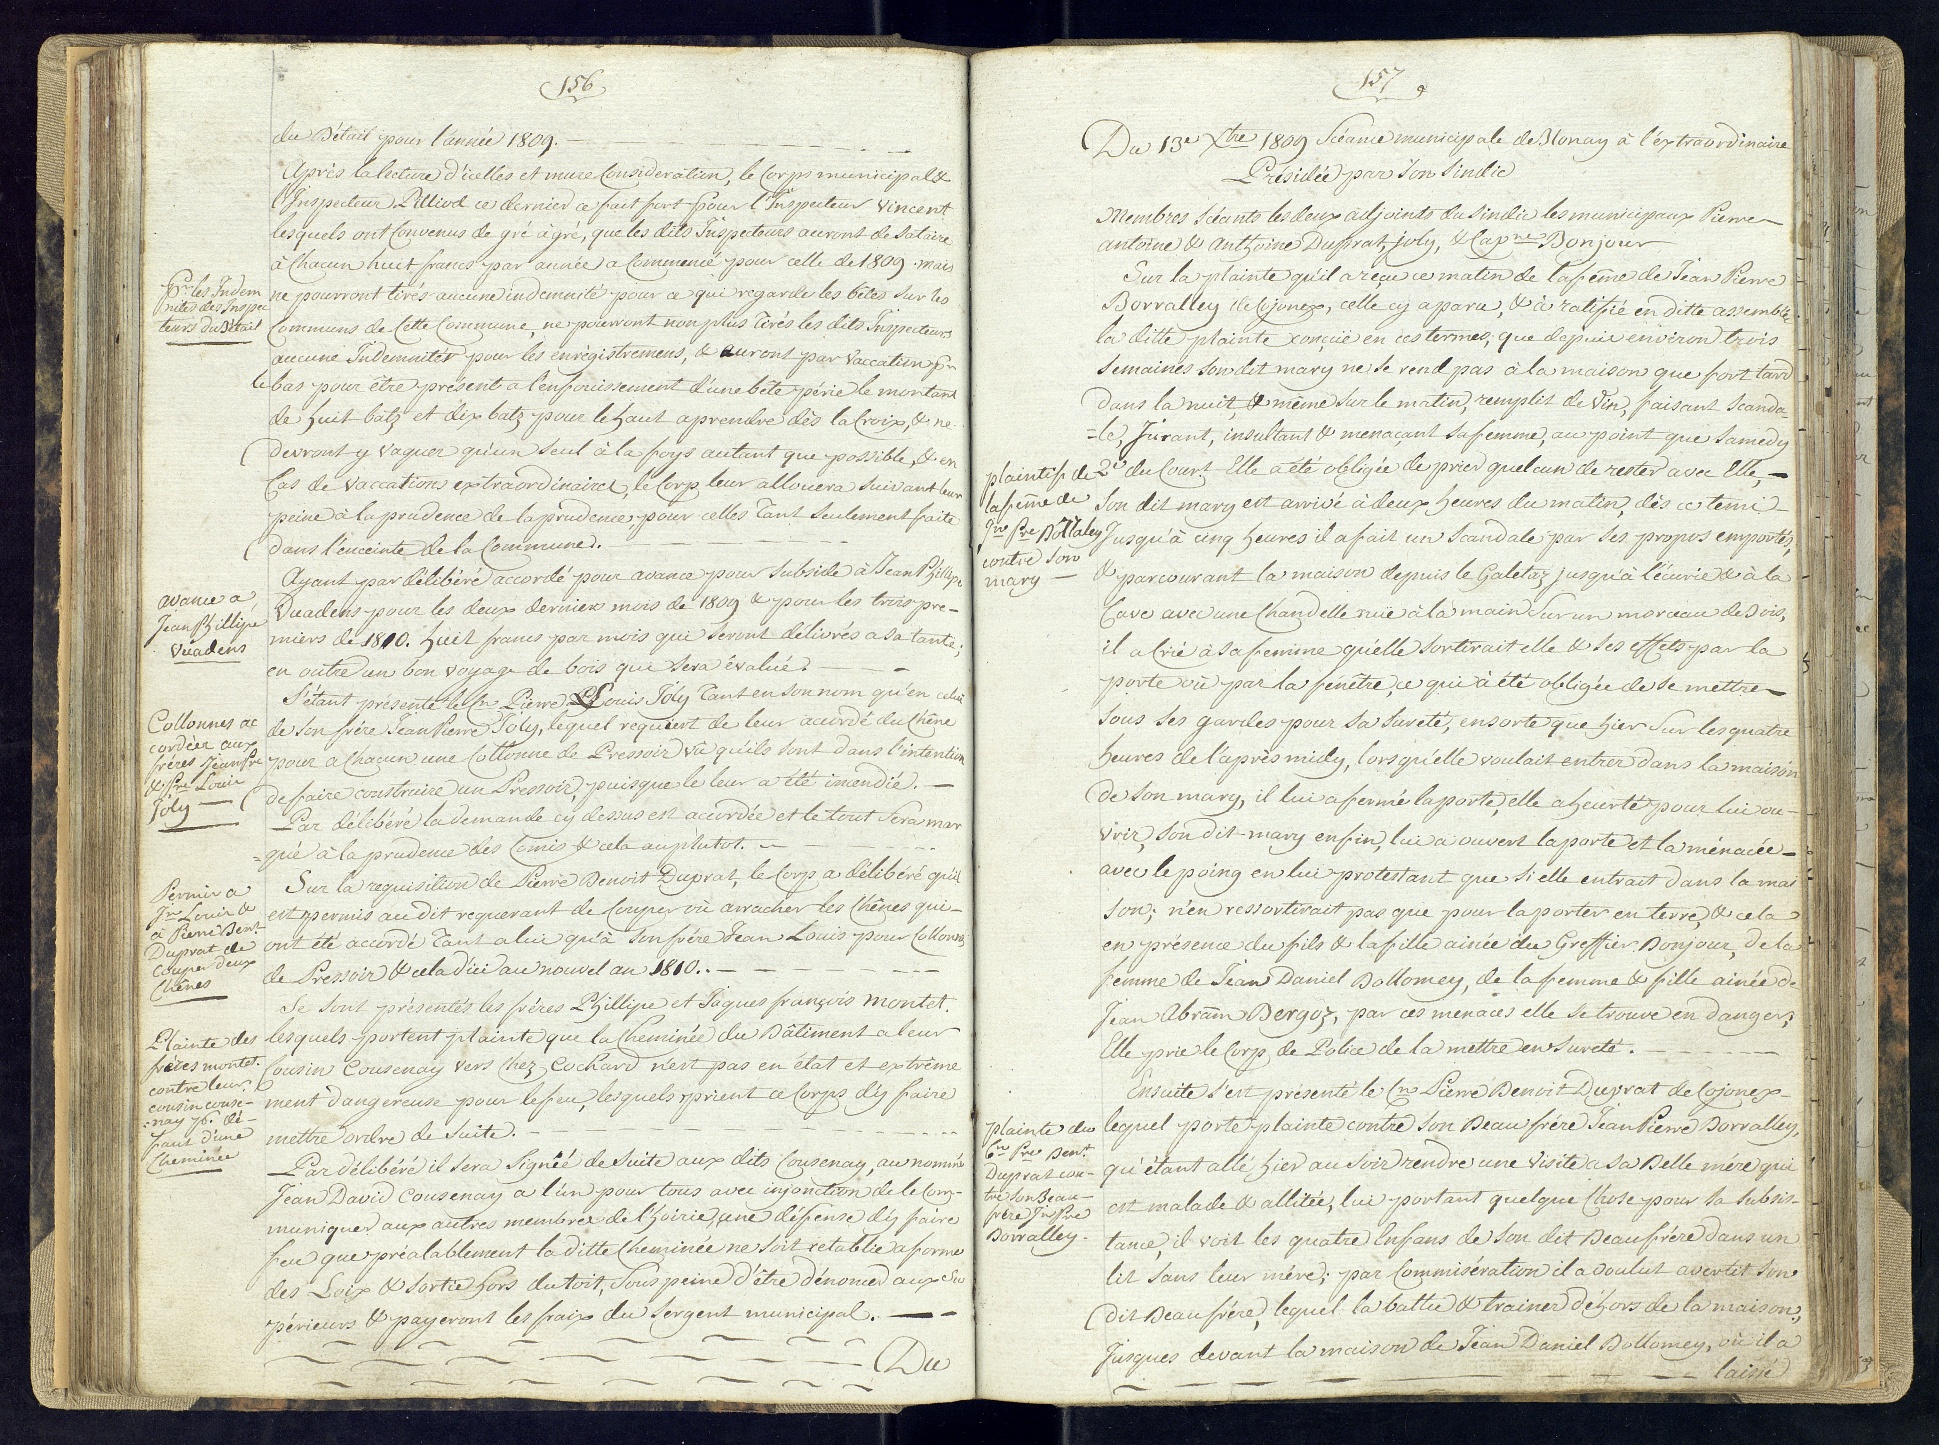 156
du Bétail pour l'année 1809.
Après la lecture d'icelles et mure Consideration, le Corps municipal &
l'Inspecteur Pilliod ce dernier ce fait fort pour l'Inspecteur Vincent
lesquels ont Convenus de gré à gré, que les dits Inspecteurs auront de Salaire
à Chacun huit francs par année a Commencé pour celle de 1809. mais
Pr. les Indem
nités des Inspec
teurs du Bétail
ne pourront tirés aucune indemnité pour ce qui regarde les bêtes sur les
Communs de Cette Commune, ne pourront non plus Tirés les dits Inspecteurs
aucune Indemnités pour les enrégistremens, & auront par Vaccation pr.
le bas pour être présent a l'enfouissement d'une bête périe le montant
de huit batz et dix batz pour le haut a prendre dès la Croix, & ne
devront y Vaquer qu'un seul à la foys autant que possible, & en
Cas de Vaccations extraordinaires, le Corp leur allouera suivant leur
peine à la prudence de la prudence, pour celles Tant seulement faite
dans l'enceinte de la Commune.
avance a
Jean Phillipe
Vuadens
Ayant par délibéré accordé pour avance pour Subside à Jean Phillipe
Vuadens pour les deux derniers mois de 1809 & pour les trois pre-
miers de 1810. huit francs par mois qui seront délivrés a sa tante;
en outre un bon voyage de bois qui sera évalué.
Collonnes ac
cordées aux
frères Jean Pre
& Pre Louis
Joly
S'étant présenté le Sr. Pierre Louis Joly Tant en son nom qu'en celui
de son frère Jean Pierre Joly, lequel requiert de leur acordé du Chêne
pour a Chacun une Collonne de Pressoir vû qu'ils sont dans l'intention
de faire construire un Pressoir, puisque le leur a été incendié.
Par délibéré la demande cy dessus est accordée et le tout sera mar
=qué à la prudence des Comis & cela au plutot.
Permis a
Jn Louis &
à Pierre Bent.
Duprat de
Couper deux
Chênes
Sur la requisition de Pierre Benoit Duprat, le Corp a délibéré qu'il
est permis au dit requerant de Couper où arracher les Chênes qui
ont été accordé Tant a lui qu'à son frére Jean Louis pour Collonne
de Pressoir & cela d'ici au nouvel an 1810.
Plainte des
frères montet
contre leur
cousin couse-
nay pr. dé
faut d'une
Cheminée
Se sont présentés les fréres Phillipe et Jaques françois Montet.
lesquels portent plainte que la Cheminée du Bâtiment a leur
Cousin Cousenay Vers Chez Cochard n'est pas en état et extrême
ment dangereuse pour le feu, lesquels prient ce Corps d'y faire
mettre ordre de Suite.
Par délibéré il sera Signifié de Suite aux dits Cousenay, au nommé
Jean David Cousenay a l'un pour tous avec injonction de le Com-
muniquer aux autres membres de l'hoirie, une défense d'y faire
feu que préalablement la ditte Cheminée ne soit rétablie a forme
des Loix & sortie hors du toit, sous peine d'être dénoncer aux Su
périeurs & payeront les fraix du Sergent municipal.
Du
157
Du 13e Xbre 1809 Séance municipale de Blonay à l'éxtraordinaire
Présidée par son Sindic
Membres Séants les deux adjoints du Sindic les municipaux Pierre
antoine & Anthoine Duprat, joly, & Capne Bonjour
Sur la plainte qu'il a reçue ce matin de la feme de Jean Pierre
Borralley de Cojonex, celle cy a paru, & à ratifié en ditte assemblée
la ditte plainte conçüe en ces termes; que depuis environ trois
Semaines son dit mary ne se rend pas à la maison que fort tard
dans la nuit, & même sur le matin, remplit de Vin, faisant Scanda-
=le, Jurant, insultant & menaçant sa femme, au point que Samedy
plainte de
la feme de
Jn Pre Borraley
contre son
mary
2e du Court. Elle a été obligée de prier quelcun de rester avec Elle,
Son dit mary est arrivé à deux heures du matin, dès ce tems
Jusqu'à cinq heures il a fait un Scandale par ses propos emportés,
& parcourant la maison depuis le Galetaz jusqu'à l'écurie & à la
Cave avec une Chandelle nuë à la main sur un morceau de Bois,
il a Crié à sa femme qu'elle sortirait elle & ses effets par la
porte où par la fenêtre, ce qui à été obligée de se mettre
sous ses gardes pour sa sureté, ensorte que hier sur les quatre
heures de l'après midy, lorsqu'elle voulait entrer dans la maison
de son mary, il lui a fermé la porte, elle a heurté pour lui ou-
vrir, son dit mary enfin, lui a ouvert la porte et la ménacée
avec le poing en lui protestant que si elle entrait dans la mai
son; n'en ressortirait pas que pour la porter en terre, & cela
en présence du fils & la fille ainée du Greffier Bonjour, de la
femme de Jean Daniel Dollomey, de la femme & fille ainée de
Jean Abram Bergoz, par ces menaces elle se trouve en danger;
Elle prie le Corp de Police de la mettre en Sureté.
plainte du
Cn Pre Bent.
Duprat con-
tre son Beau-
frère Jn Pre
Borralley.
Ensuite s'est présenté le Cn Pierre Benoit Duprat de Cojonex
lequel porte plainte contre son Beau frére Jean Pierre Borralley,
qu'étant allé hier au soir rendre une visite a sa Belle mére qui
est malade & allitée, lui portant quelque Chose pour sa Subsis-
tance, il voit les quatre Enfans de son dit Beaufrére dans un
lit sans leur mére; par Commisération il a voulut avertit son
dit Beaufrére, lequel la battu & trainer déhors de la maison,
Jusques devant la maison de Jean Daniel Dollomey, où il a
laissé